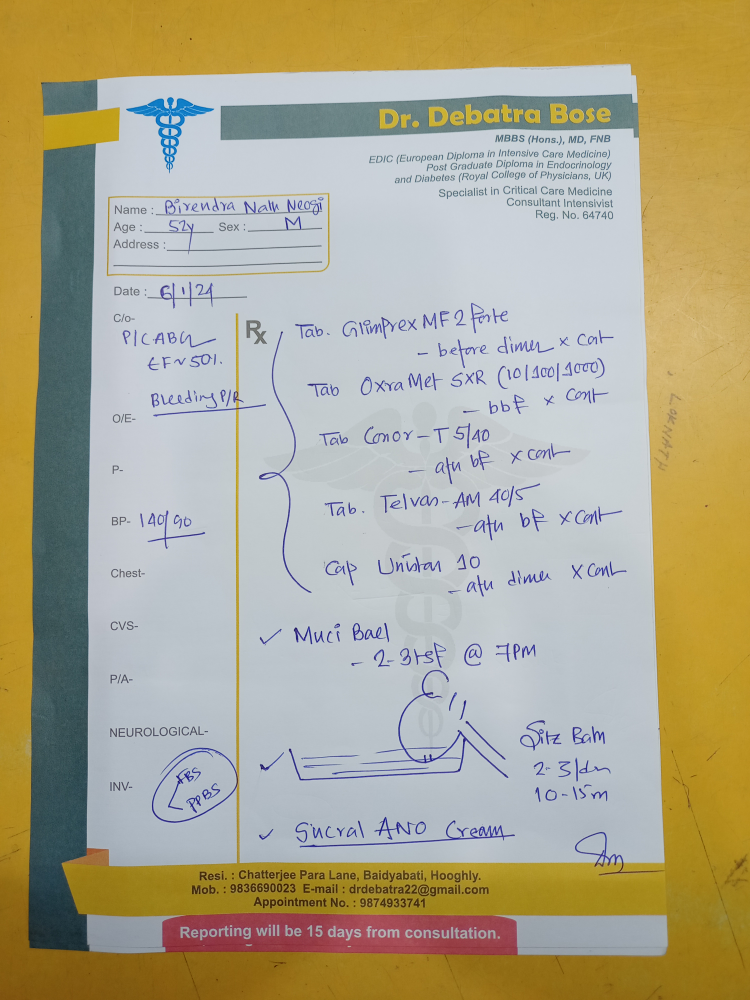 Dr. Debatra Bose
MBBS (Hons.), MD, FNB
EDIC (European Diploma in Intensive Care Medicine)
Post Graduate Diploma in Endocrinology
and Diabetes (Royal College of Physicians, UK)
Specialist in Critical Care Medicine
Consultant Intensivist
Reg. No. 64740
Name : Birendra Nath Neogi
Age : 52y Sex : M
Address :
Date : 6/1/24
C/o-
P/CABG
EF~50%.
Bleeding P/R
O/E-
P-
BP- 140/90
Chest-
CVS-
P/A-
NEUROLOGICAL-
INV-
FBS
PPBS
Rx
Tab. Glimprex MF 2 forte
- before dinner x cont
Tab OxraMet SXR (10/100/1000)
- bbf x cont
Tab Conor-T 5/40
- aftr bf x cont
Tab. Telvas-AM 40/5
- aftr bf x cont
Cap 10
- aftr dinner x cont
✓ Muci Bael
- 2-3 tsf @ 7pm
✓
Sitz Bath
2-3/day
10-15m
✓ Sucral ANO Cream
LOKNATH
Resi. : Chatterjee Para Lane, Baidyabati, Hooghly.
Mob. : 9836690023 E-mail : drdebatra22@gmail.com
Appointment No. : 9874933741
Reporting will be 15 days from consultation.